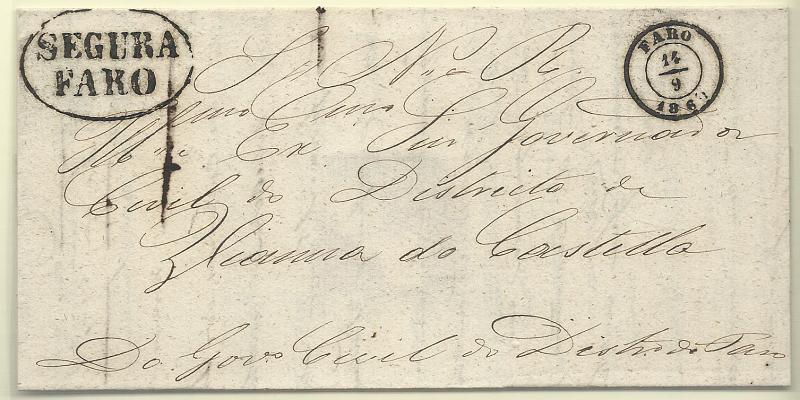 SEGURA
FARO
FARO
14
9
186
S. N. R.
Illmo Exmo Snr Governador
Civil do Districto de
Vianna do Castello
Do Govo Civil do Districto de Faro